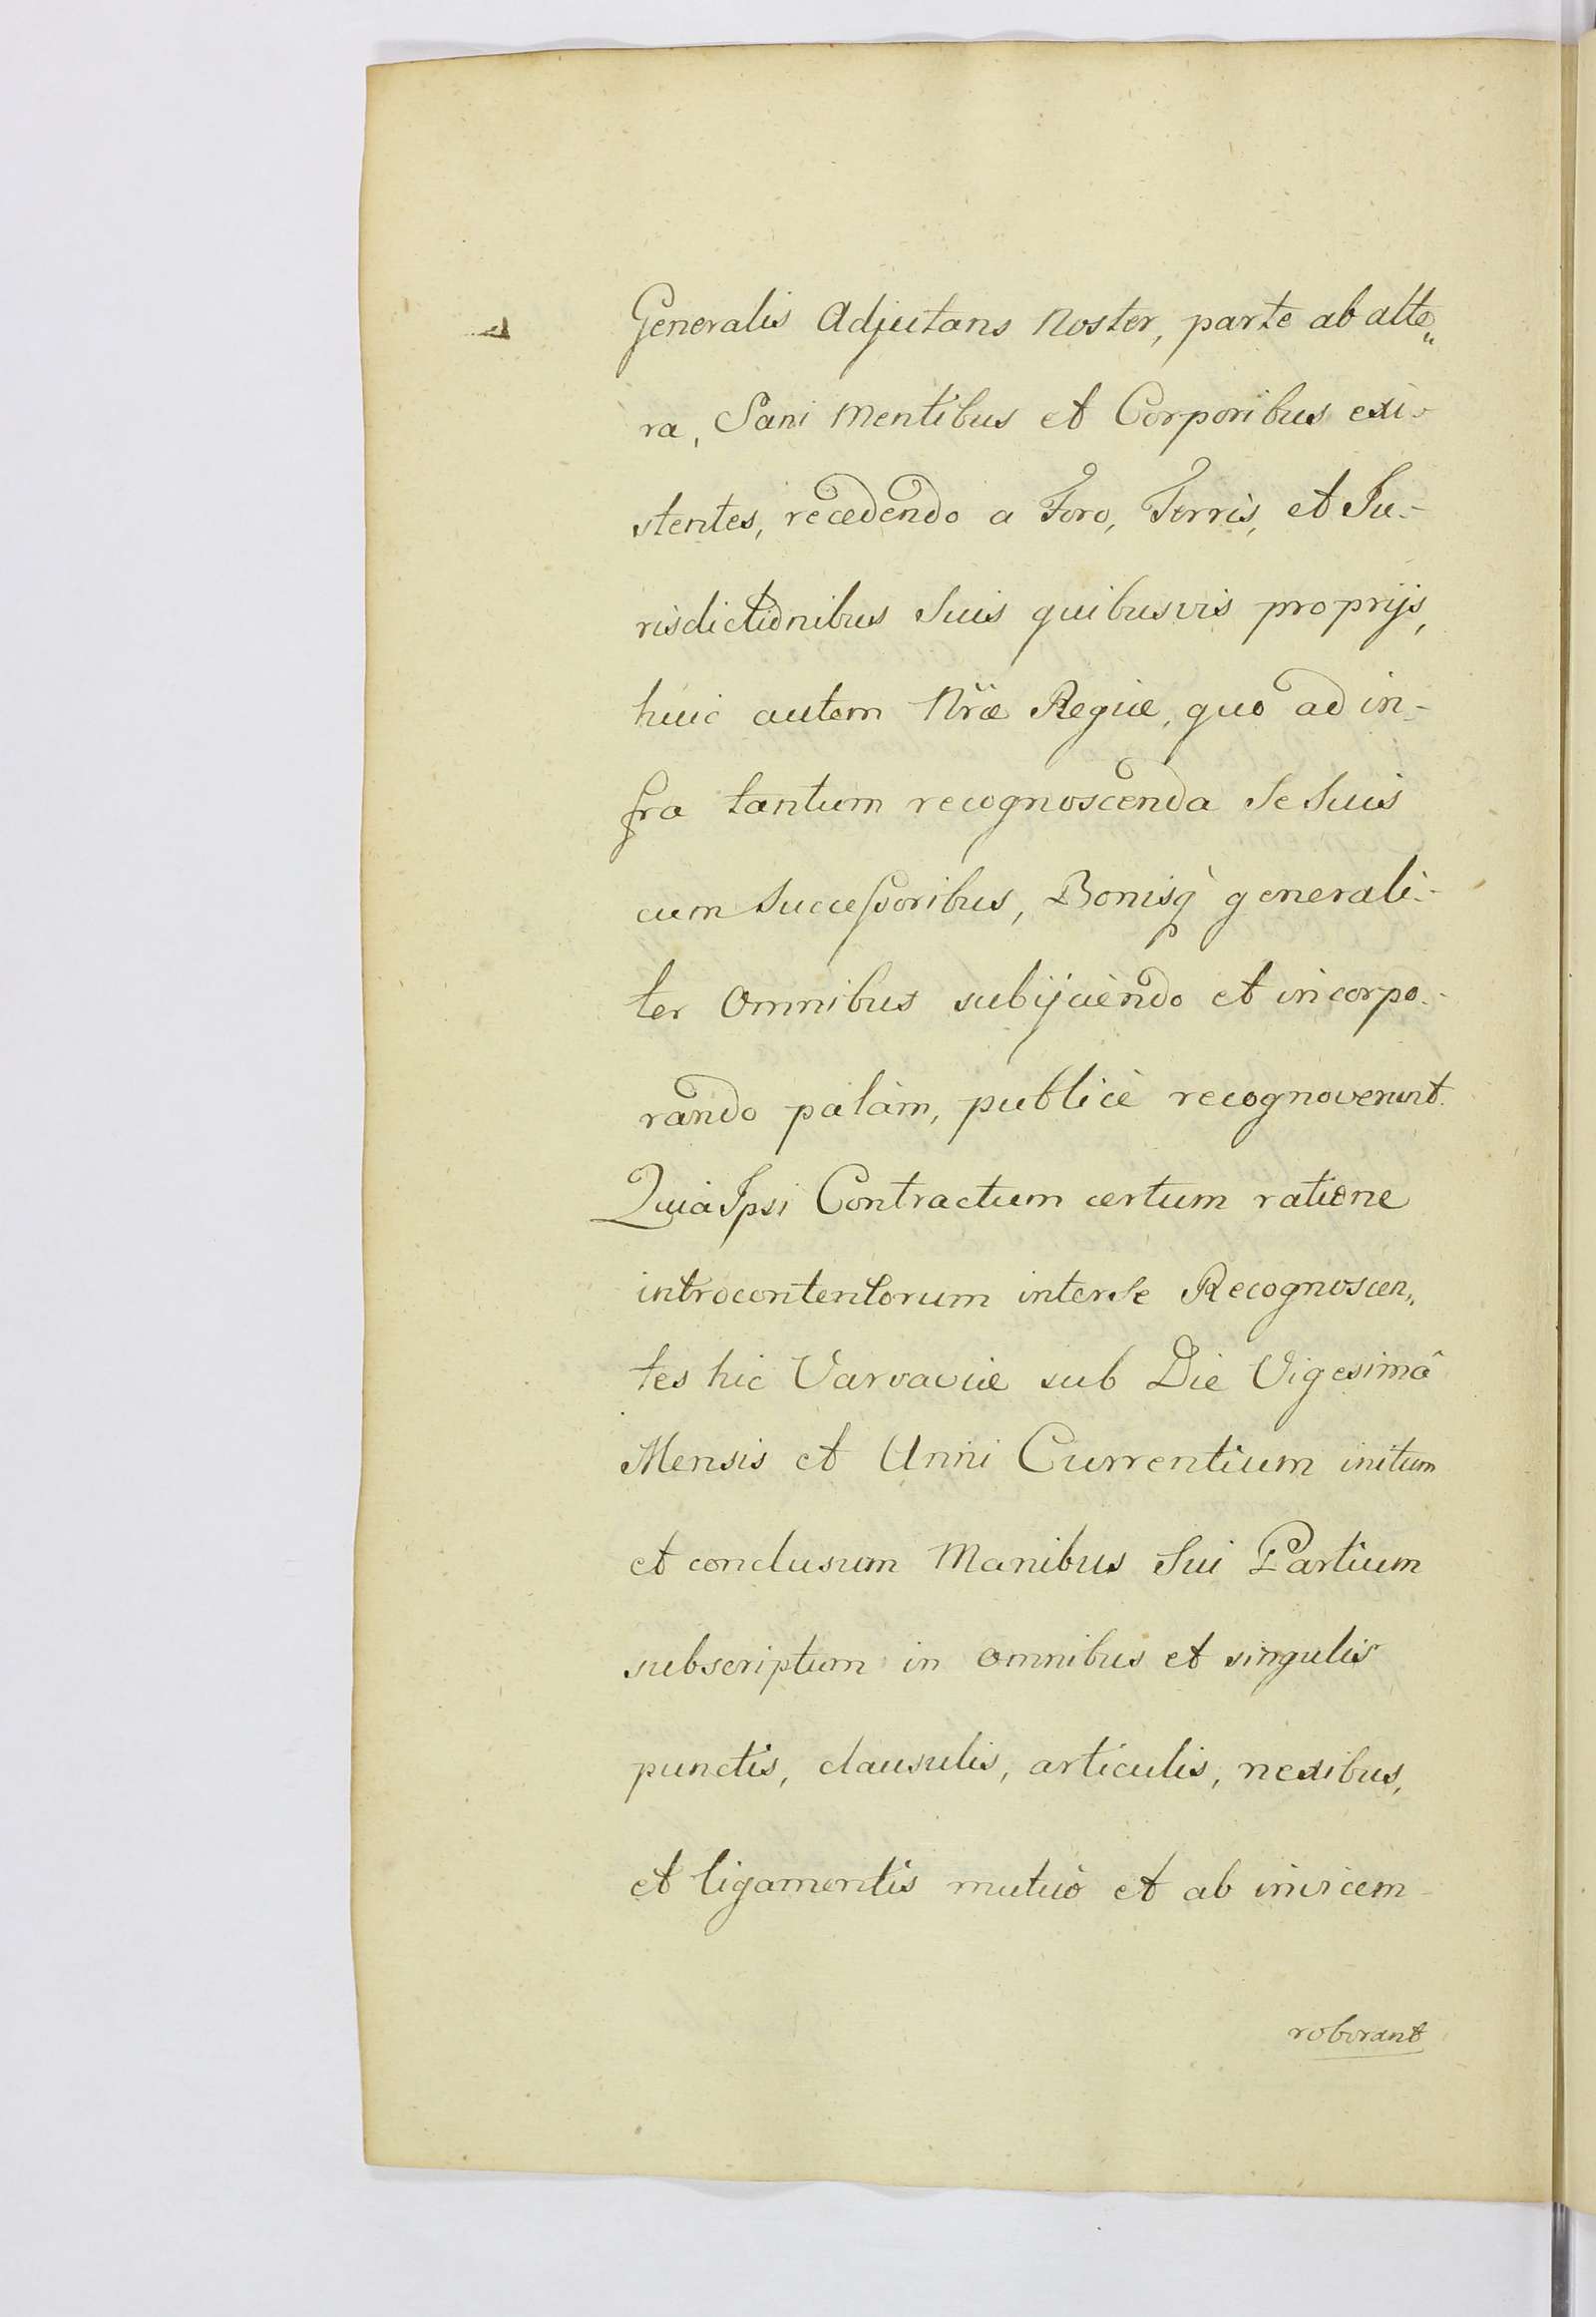 Generalis Adjutans Noster, parte ab alte„
ra, Sani Mentibus et Corporibus exi-
stentes, recedendo a Foro, Terris, et Ju-
risdictionibus Suis quibusvis proprijs,
huic autem Nrae Regiae, quo ad in-
fra tantum recognoscenda Se Suis
cum Succeſsoribus, Bonisq̀ generali-
ter Omnibus subijciendo et incorpo-
rando palàm, publicè recognoverunt.
Quia Ipsi Contractum certum ratione
introcontentorum inter Se Recognoscen„
tes hic Varsaviae sub Die Vigesimâ
Mensis et Anni Currentium initum
et conclusum Manibus Sui Partium
subscriptum in omnibus et singulis
punctis, clausulis, articulis, nexibus,
et ligamentis mutuò et ab invicem
roborant